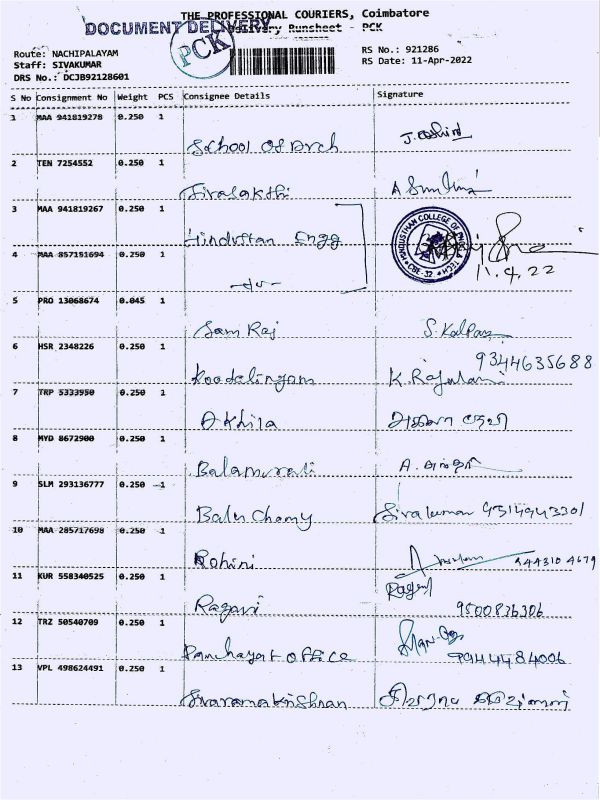 THE PROFESSIONAL COURIERS, Coimbatore
DOCUMENT DELIVERY
Delivery Runsheet - PCK
PCK
Route: NACHIPALAYAM
Staff: SIVAKUMAR
DRS No.: DCJB92128601
RS No.: 921286
RS Date: 11-Apr-2022
S No Consignment No Weight PCS Consignee Details Signature
1 MAA 941819278 0.250 1
School of Arch
2 TEN 7254552 0.250 1
Sivasakthi
3 MAA 941819267 0.250 1
Hindustan Engg
HINDUSTHAN COLLEGE OF TECH CBE-32
11.4.22
4 MAA 857151694 0.250 1
5 PRO 13068674 0.045 1
Sam Raj S. Kalpana
6 HSR 2348226 0.250 1
9344635688
Koodalingam K. Rajamani
7 TRP 5333950 0.250 1
Akhila
8 MYD 8672900 0.250 1
Balamurali
9 SLM 293136777 0.250 1
Balu Chamy Sivakumar
10 MAA 285717698 0.250 1
Rohini
11 KUR 558340525 0.250 1
Ragavi 9500836306
12 TRZ 50540709 0.250 1
Panchayat office 9444484006
13 VPL 498624491 0.250 1
Sivaramakrishnan